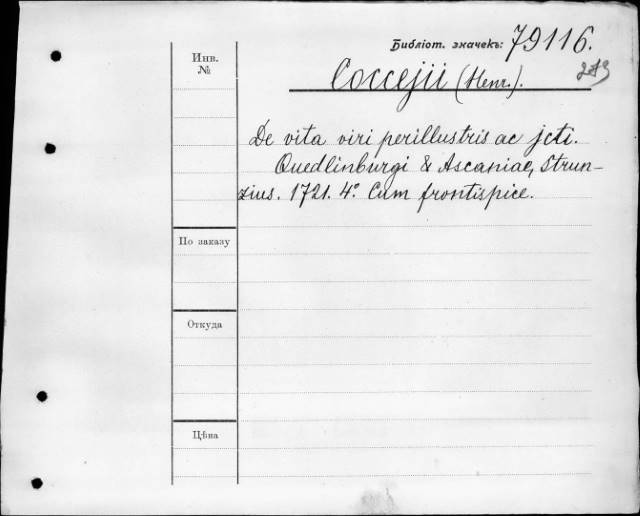 Библіот. значекъ: 79116.
Инв. №
Coccejii (Henr.).
De vita viri perillustris ac jcti.
Quedlinburgi & Ascaniae, Strun-
zius. 1721. 4° Cum frontispice.
По заказу
Откуда
Цѣна